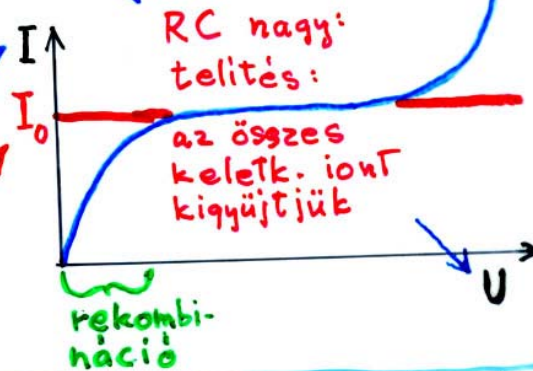 I
RC nagy:
telítés:
I₀
az összes
keletk. iont
kigyűjtjük
U
rekombi-
náció